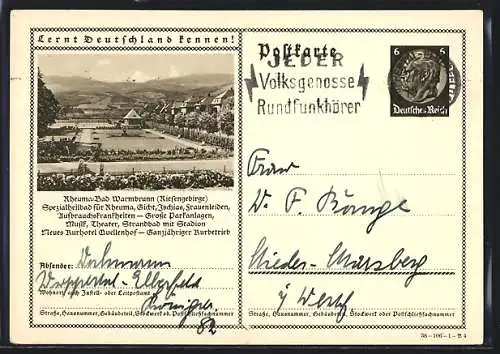 Lernt Deutschland kennen!
Postkarte
JEDER
Volksgenosse
Rundfunkhörer
6 6
Deutsches Reich
Rheuma-Bad Warmbrunn (Riesengebirge)
Spezialheilbad für Rheuma, Gicht, Ischias, Frauenleiden,
Aufbrauchskrankheiten — Große Parkanlagen,
Musik, Theater, Strandbad mit Stadion
Neues Kurhotel Quellenhof — Ganzjähriger Kurbetrieb
Absender: Dahmann
Wuppertal-Elberfeld
Wohnort, auch Zustell- oder Leitpostamt
82
Straße, Hausnummer, Gebäudeteil, Stockwerk od. Postschließfachnummer
Frau
W. F. Range
Nieder-Marsberg
i/ Westf
Straße, Hausnummer, Gebäudeteil, Stockwerk oder Postschließfachnummer